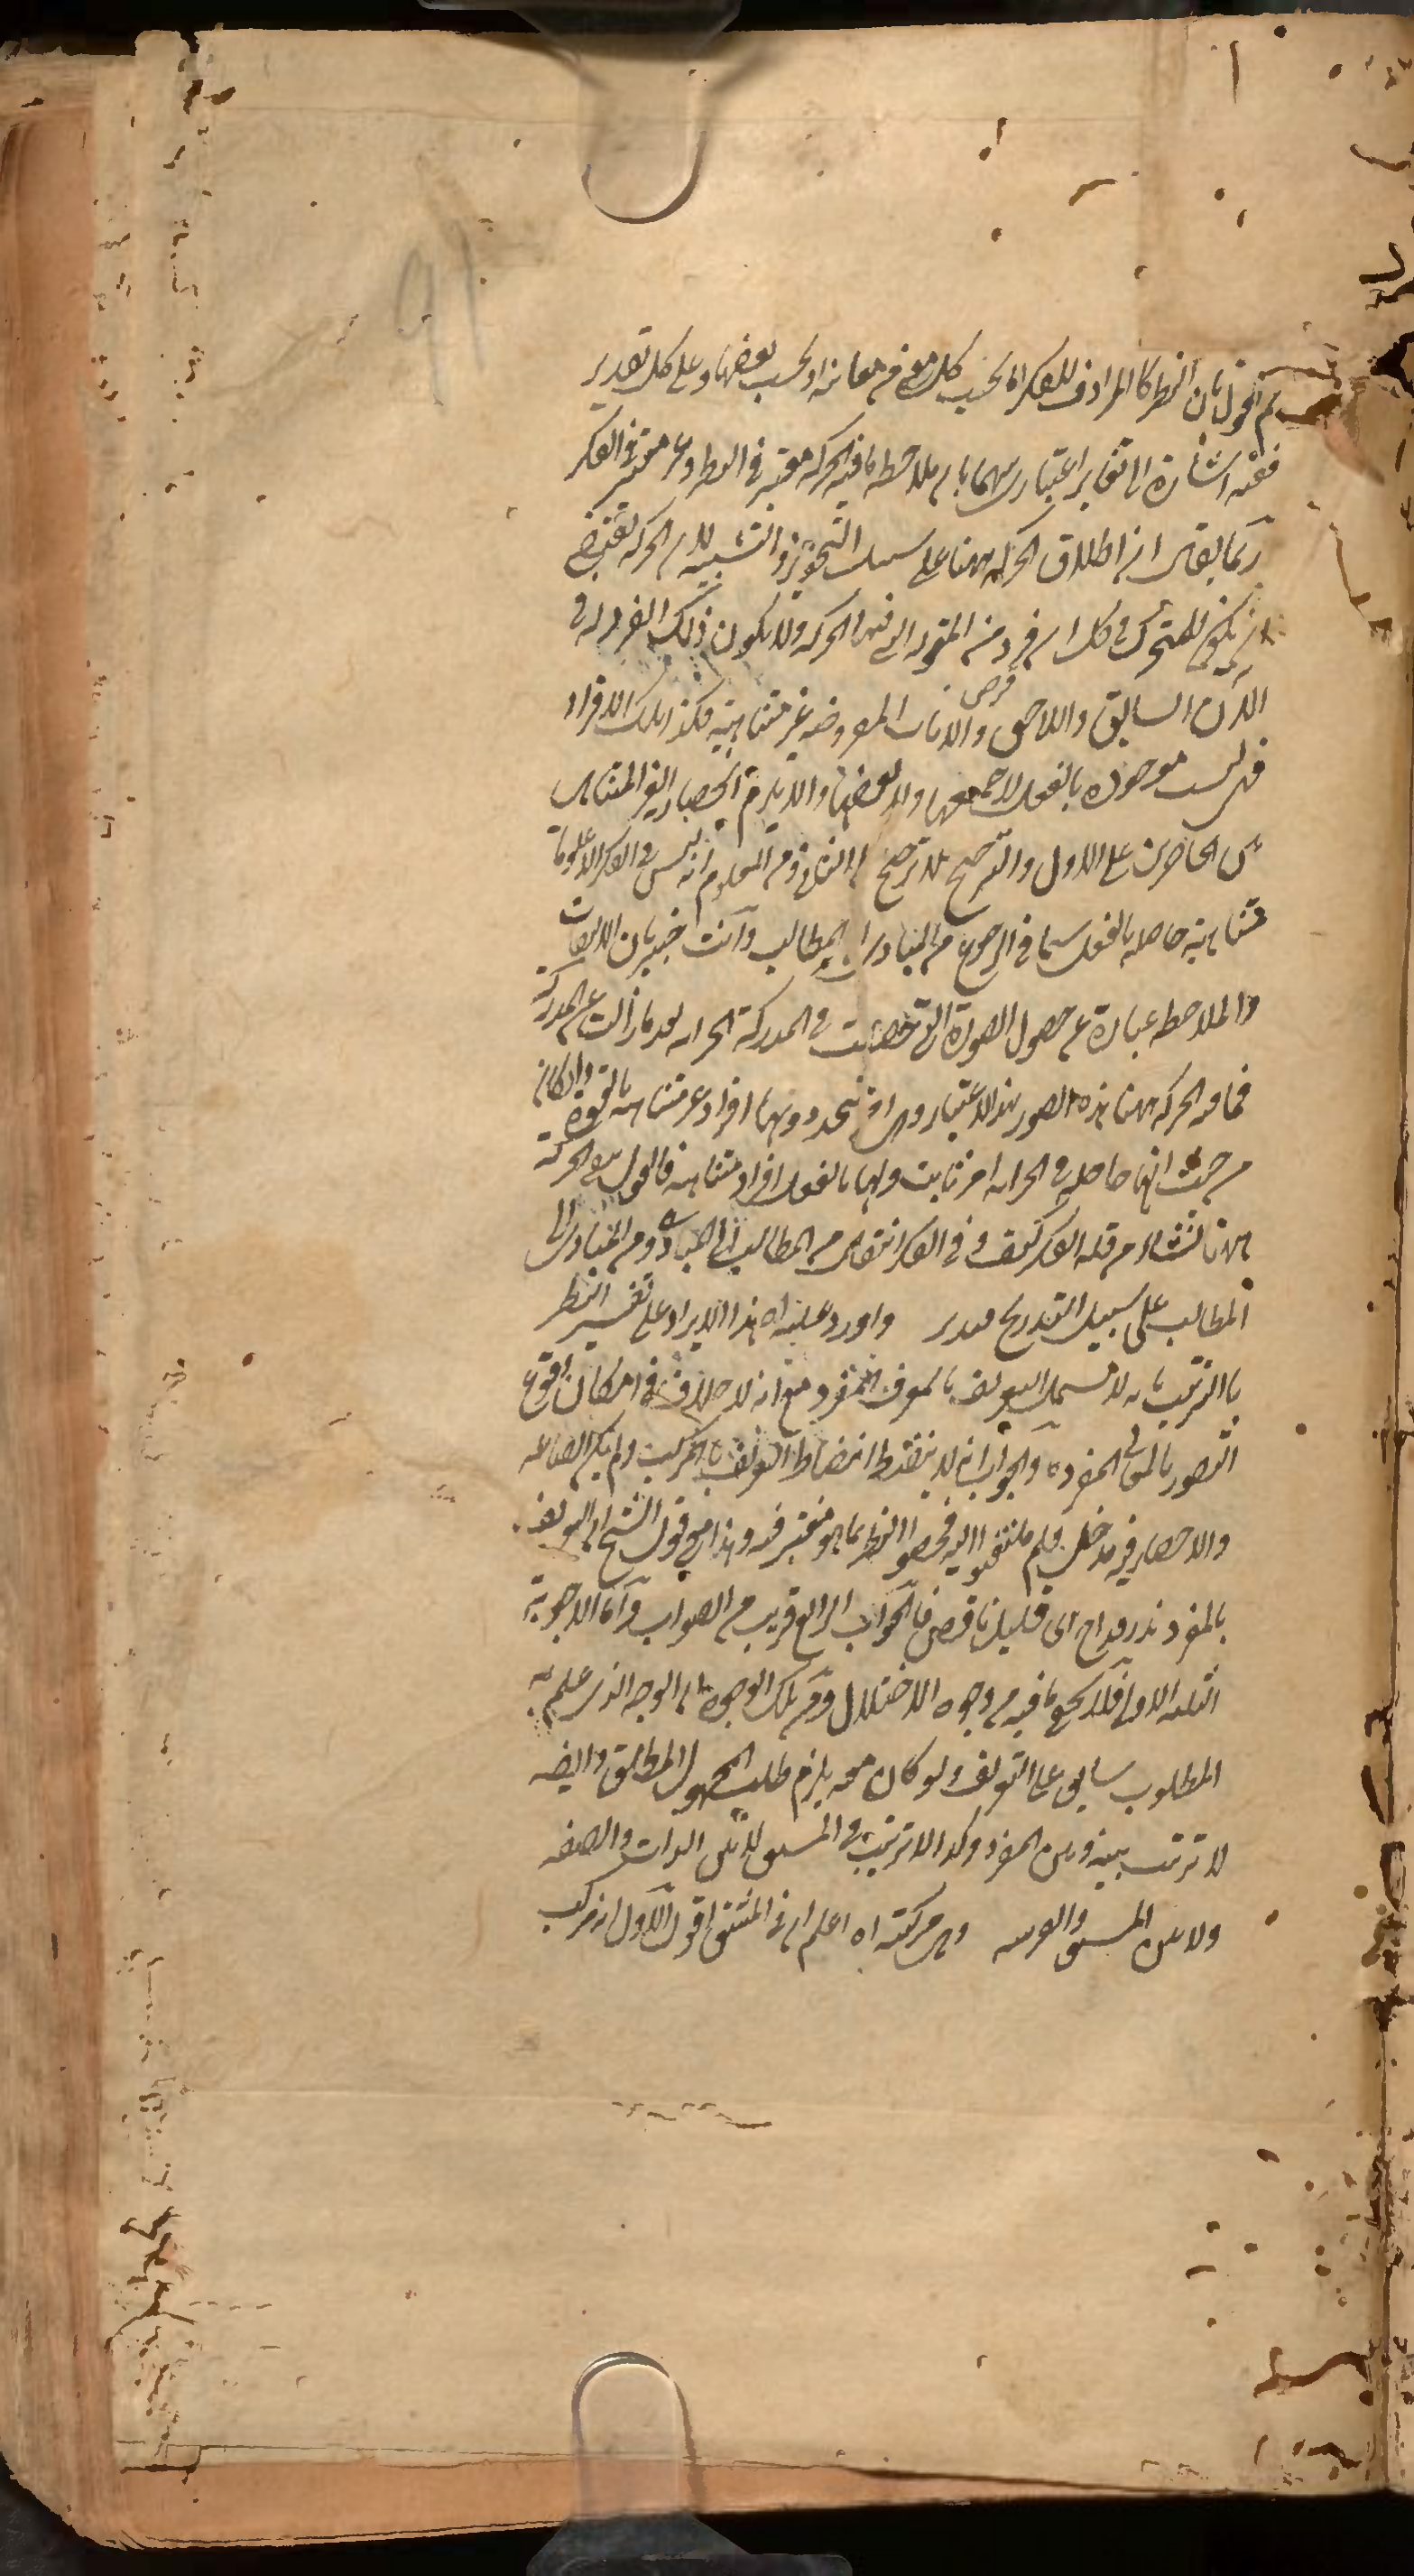 ثم اقول بان النظر كالمرادف للفكر اما بحسب كل معنى من معانيه او بحسب بعضها وعلى كل تقدير
ففيه اشارة الى تغاير اعتباري بينهما بان ملاحظة ما فيه الحركة معتبر في النظر وغير معتبر في الفكر
ربما يقال ان اطلاق الحركة ههنا على سبيل التجوز والتشبيه لان الحركة تقتضي
ان يكون للمتحرك في كل ان فرد من المقولة التي فيها الحركة ولا يكون ذلك الفرد له في
الآن السابق واللاحق والانات المفروضة غير متناهية فكذا تلك الافراد
فهي ليست موجودة بالفعل لا جميعها ولا بعضها والا يلزم انحصار الغير المتناهي
بين الحاصرين على الاول والترجيح بلا مرجح على الثاني ومن المعلوم انه ليس في الفكر الا علوما
متناهية حاصلة بالفعل سيما في الرجوع من المبادي الى المطالب وانت خبير بان الالتفات
والملاحظة عبارة عن حصول الصورة التي حصلت في المدركة الخزانة بعد ما زالت عن المدركة
فما فيه الحركة ههنا هذه الصور بهذا الاعتبار وهي امر يتجدد ولها افراد غير متناهية بالقوة وان كان
من حيث انها حاصلة في الخزانة امر ثابت ولها بالفعل افراد متناهية فالقول بنفي الحركة
ههنا نشاء من قلة الفكر كيف وفي الفكر انتقال من المطالب الى المبادي ومن المبادي الى
المطالب على سبيل التدريج فتدبر واورد عليه اه هذا الايراد على تفسير النظر
بالترتيب بانه لا يشمل التعريف بالمعرف المفرد مع انه لا خلاف في امكان وقوع
التصور بالمعاني المفردة والجواب انه لا ينضبط انضباط التعريف بالمركب ولم يكن للصناعة
والاختيار فيه مدخل فلم يلتفتوا اليه فخصوا النظر بما هو معتبر فيه وهذا معنى قول الشيخ ان التعريف
بالمفرد نزر خداج اي قليل ناقص فالجواب الرابع قريب من الصواب واما الاجوبة
الثلثة الاول فلا يخفى ما فيه من وجوه الاختلال ومن تلك الوجوه ان الوجه الذي علم به
المطلوب سابق على التعريف ولو كان معه يلزم طلب المجهول المطلق وايضا
لا ترتيب بينه وبين المفرد وكذا لا ترتيب في المشتق لا بين الذات والصفة
ولا بين المشتق والقرينة وهي مركبة اه اعلم ان في المشتق اقوال الاول انه مركب